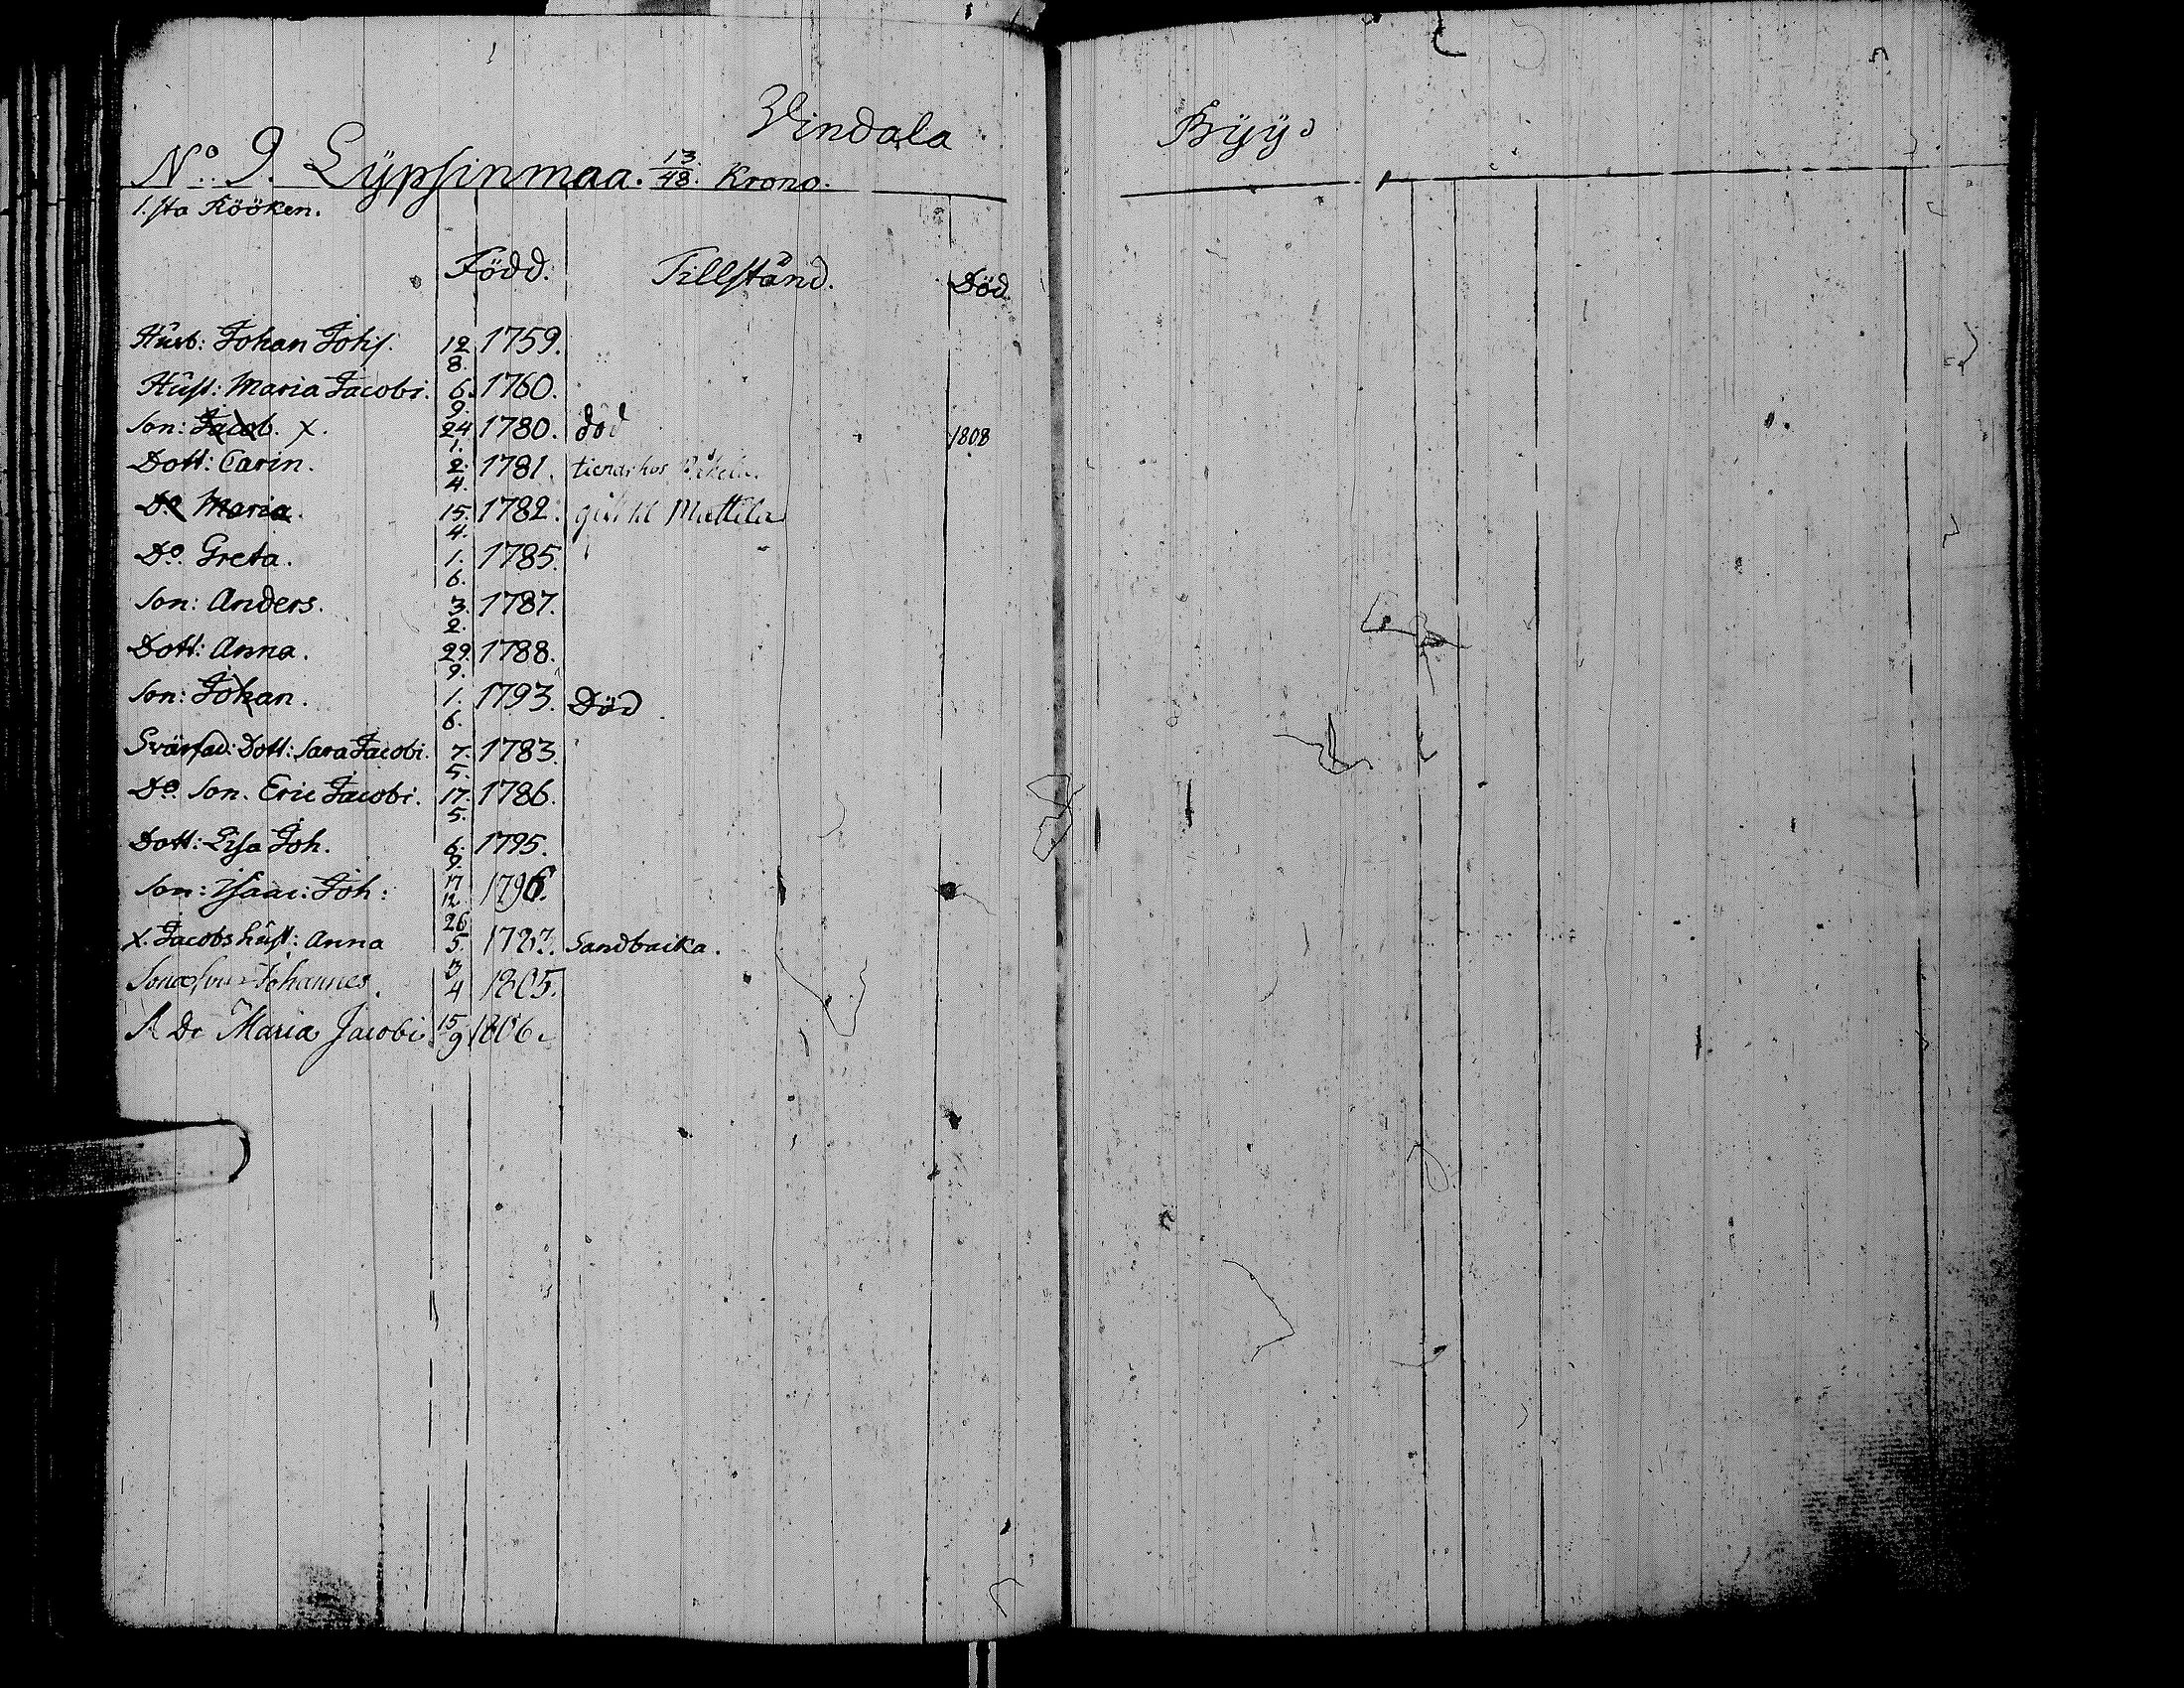 Vindala Byy
N:o 9. Lypsinmaa. 13/48. Krono.
1.sta Rööken.
Född. Tillstånd. Död.
Husb: Johan Johs. 12 8. 1759.
Hust: Maria Jacobi. 6. 9. 1760.
Son: Jacob. x. 24 1. 1780. död 1808
Dott: Carin. 2. 4. 1781. tienar hos
Do Maria. 15. 4. 1782. gift til Mattila
Do. Greta. 1. 6. 1785.
Son: Anders. 3. 2. 1787.
Dott: Anna. 29. 9. 1788.
Son: Johan. 1. 6. 1793. Död
Svärfad: Dott: Sara Jacobi. 7. 5. 1783.
Do. Son. Eric Jacobi. 17. 5. 1786.
Dott: Lisa Joh. 6. 9. 1795.
Son: Isaac: Joh: 17 12 1796.
x. Jacobs hust: Anna 26 5. Sandbacka.
Johannes. 3 4 1805.
Maria Jacobi 15 9 1806.